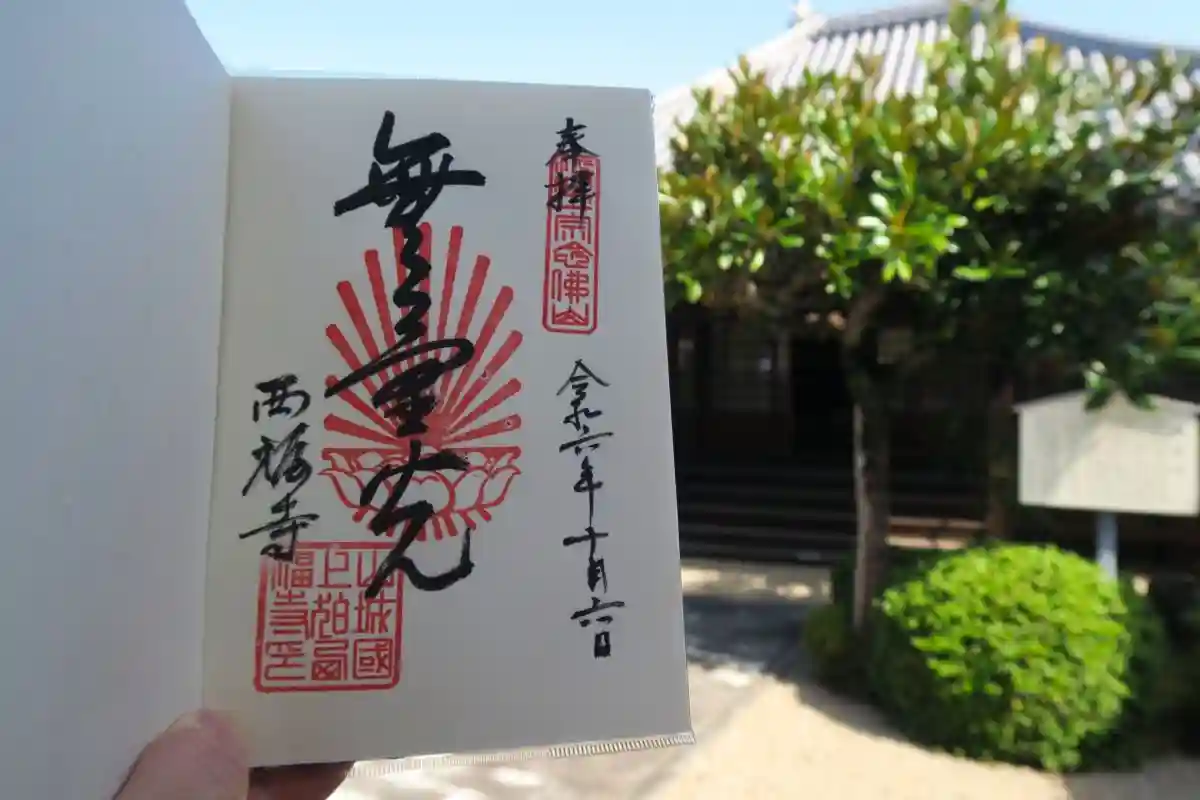 奉拝
宗念佛山
令和六年十月六日
無量光
西福寺
山城國
上狛西
福寺印